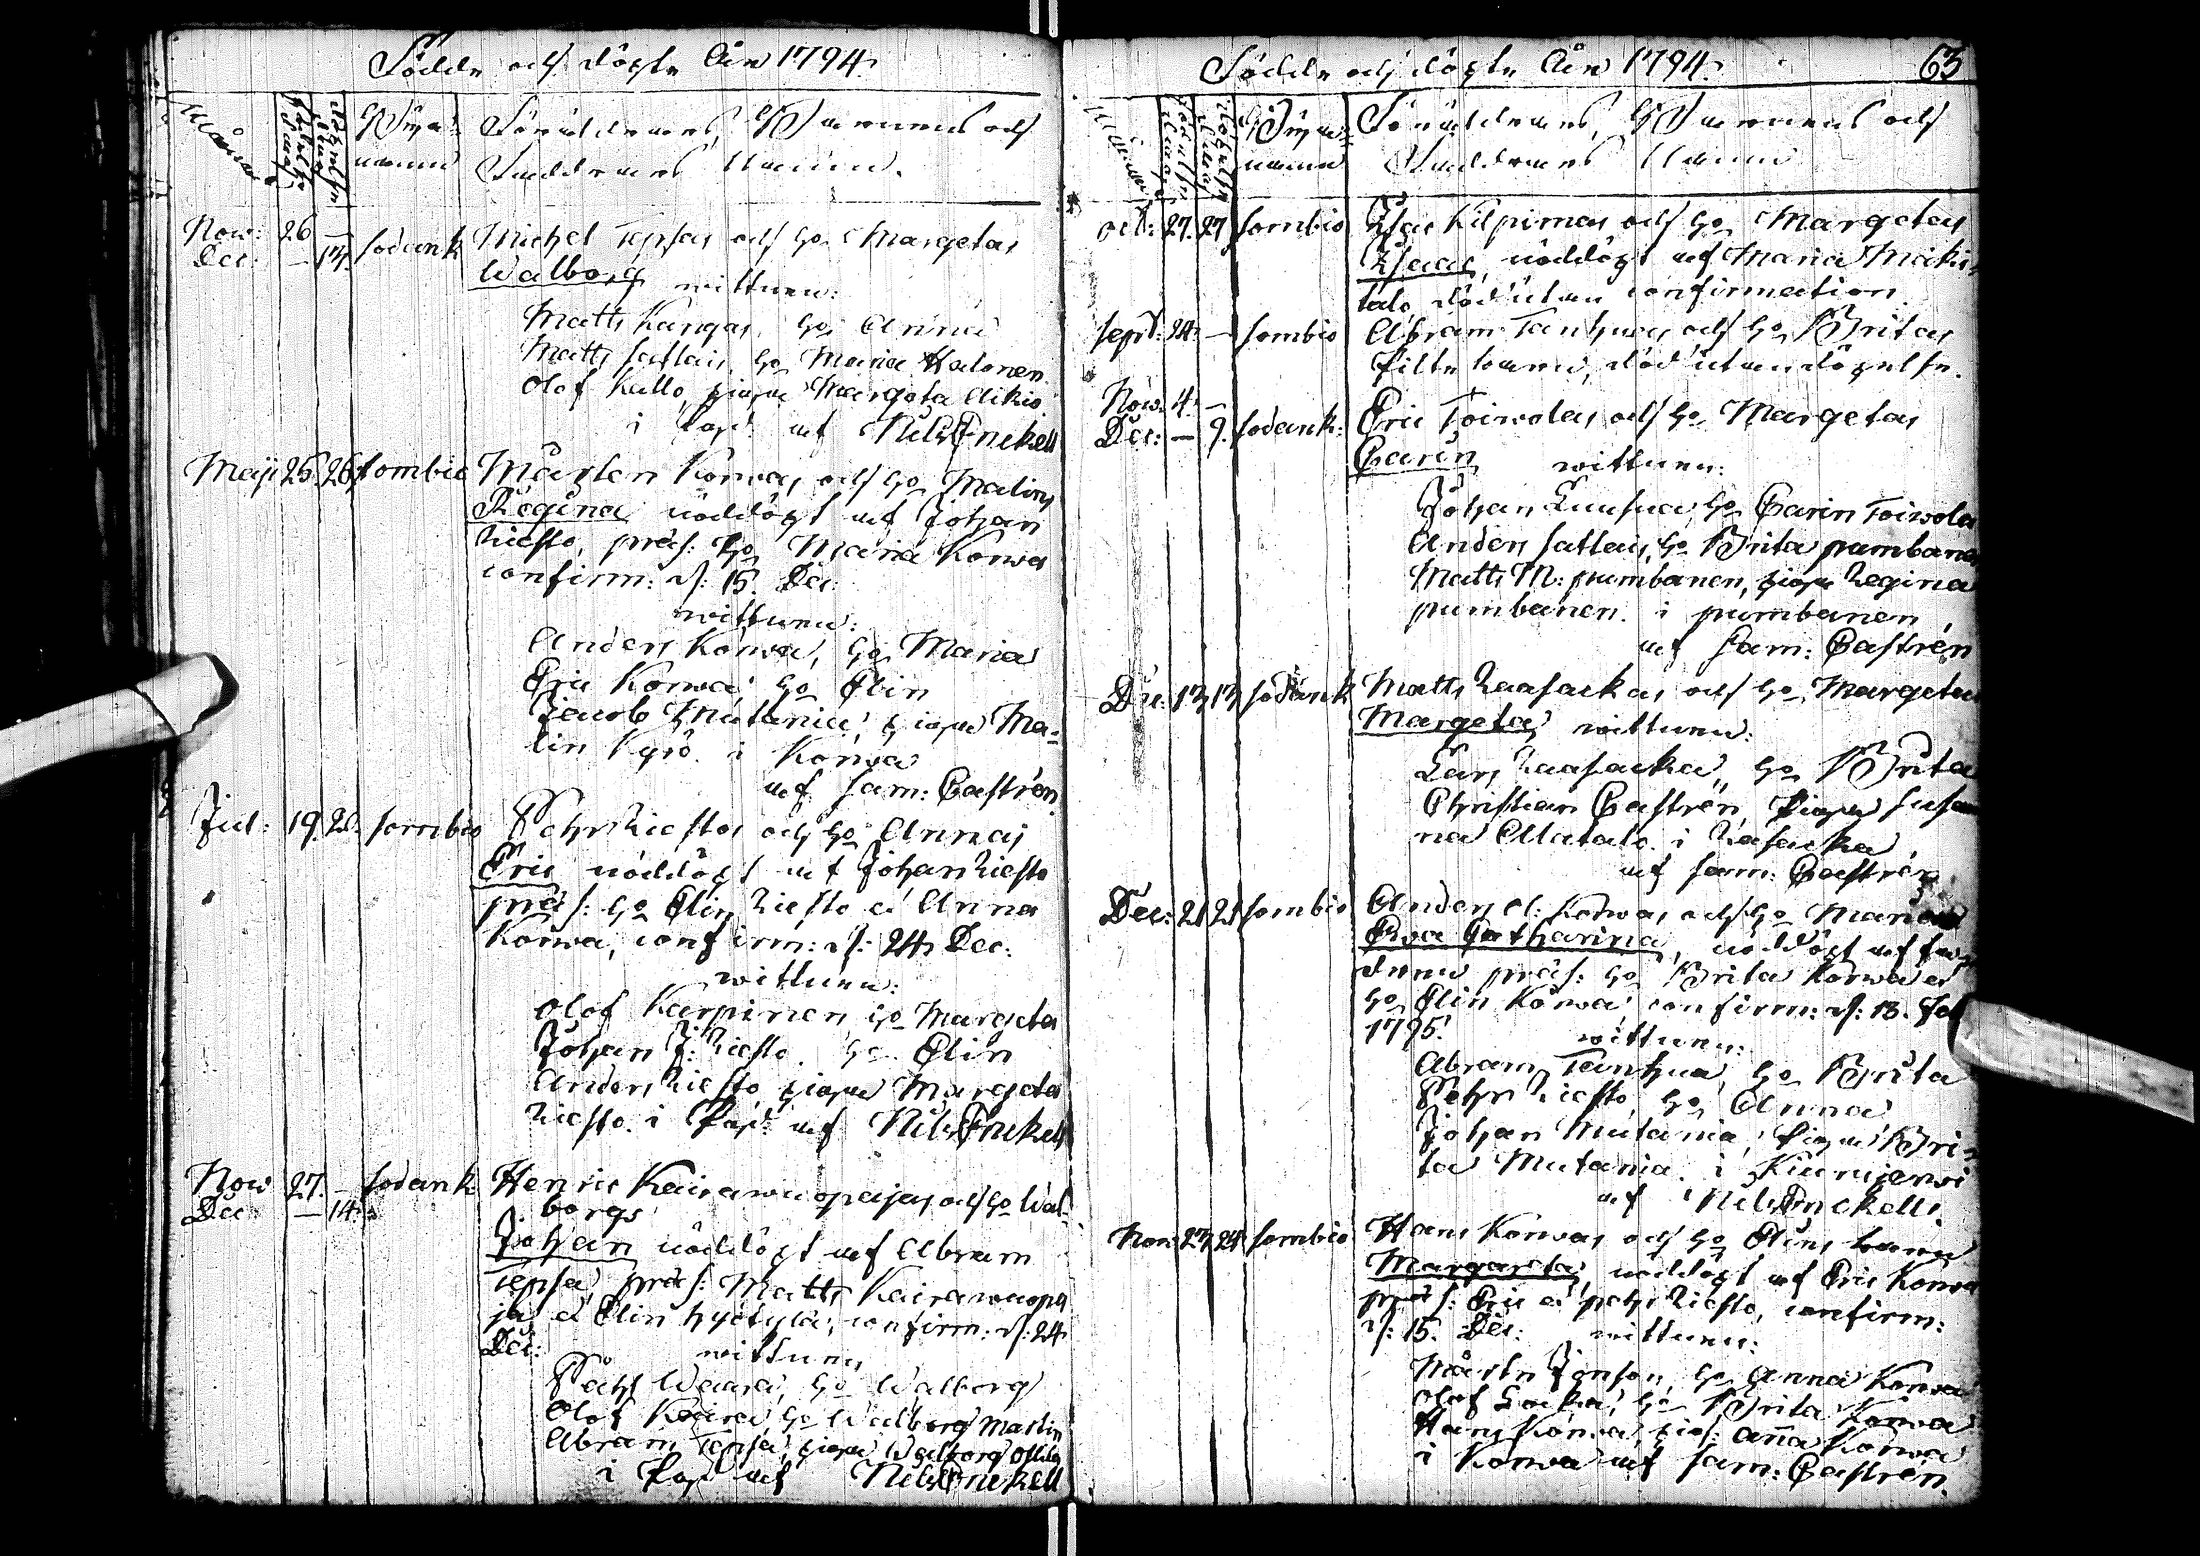 Födde och döpte Åhr 1794.
Månad
Födelse dag
Döpelse dag
Byanamn
Föräldrarnes, Barnens och
Faddrarnes Namn.
Now: 26 —
Dec: — 13. Sodank
Michel Tepsas och h:o Margetas
Walborg wittnen:
Matts Kangas, h:o Anna
Matts Sattais, h:o Maria Halonen
Olof Kullo, pigan Margeta Aikio
i Cap. af Nils Fnckell
Maji 25. 26. Sombio Mårten Korwas och h:o Malins
Regina nöddöpt af Johan
Riesto, præs: h:o Maria Korwa
confirm: d: 15. Dec:
wittnen:
Anders Korwa, h:o Maria
Eric Korwa, h:o Elin
Jacob Mutania, pigan Ma=
lin Kyrö. i Korwa
af Sam: Castrén
Jul: 19. Sombio Pehr Riestos och h:o Annas
Eric nöddöpt af Johan Riesto
præs: h:o Elin Riesto et Anna
Korwa, confirm: d: 24 Dec:
wittnen:
Olof Karpinen h:o Margeta
Johan J: Riesto. h:o Elin
Anders Riesto, pigan Margeta
Riesto. i Cap. af Nils Fnckell
Now 27. — Sodank
Dec — 14.
Henric Kairawuopajas och h:o Wal=
borgs
Johan nöddöpt af Abram
Tepsa, præs: Matts Kairawuopa
ja et Elin Hyötylä, confirm: d: 24
Dec: wittnen
Påhl Waara, h:o Walborg
Olof Kaira h:o Walborg Martin
Abram Tepsa, pigan Walborg
i Cap af Nils Fnckell
Födde och döpte Åhr 1794. 63
Månad
Födelse dag
Döpelse dag
Byanamn
Föräldrarnes, Barnens och
Faddrarnes Namn
oct: 27. 27 Sombio Isac Kilpimas och h:o Margetas
Isaac, nöddöpt af Maria Maki=
talo, död utan confirmation.
Sept: 24. — Sombio Abram Tanhuas och h:o Britas
flickebarn, död utan döpelse.
Now. 4. —
Dec: — 9. Sodank: Eric Toiwolas och h:o Margetas
Carin wittnen:
Johan Luusua, h:o Carin Toiwola
Anders Sattais, h:o Brita pumbanen
Matts M: pumbanen, pigan Regina
pumbanen. i pumbanen
af Sam: Castrén
Dec: 13 13 Sodank Matts Raasackas och h:o Margetas
Margeta wittnen:
Lars Raasacka, h:o Brita
Christian Castrén pigan Susan
na Alatalo. i Rasacka
af Sam: Castrén
Dec: 21 21 Sombio Anders A: Korwas och h:o Marias
Ewa Catharina, nöddöpt af fa=
dren præs: h:o Brita Korwa et
h:o Elin Korwa, confirm: d: 13. Feb
1795. wittnen:
Abram Tanhua, h:o Brita
Pehr Riesto, h:o Anna
Johan Mutania, pigan Bri=
ta Mutania. i Kiurujerwi
af Nils Fnckell.
Now: 23 24 Sombio Hans Korwas och h:o Elins barn
Margareta, nöddöpt af Eric Korwa
præs: Eric et pehr Riesto, confirm:
d: 15. Dec: wittnen:
Mårten Jonson, h:o Anna Korwa
Olof Locka, h:o Brita Korwa
Hans Korwa, pig: Anna Korwa
i Korwa af Sam: Castrén.